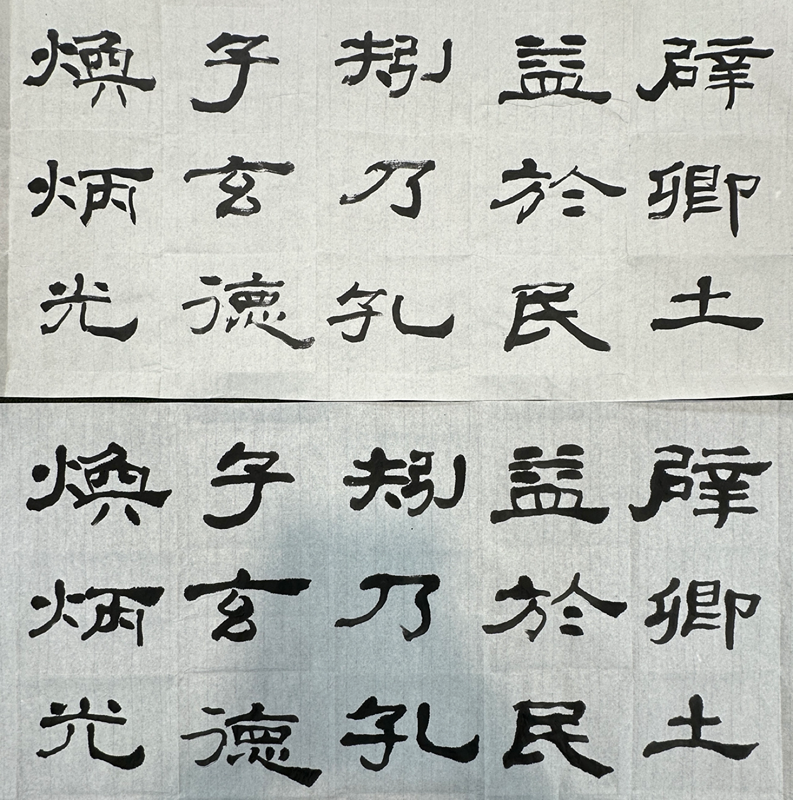 辟卿土
益於民
矧乃孔
子玄德
煥炳光
辟卿土
益於民
矧乃孔
子玄德
煥炳光